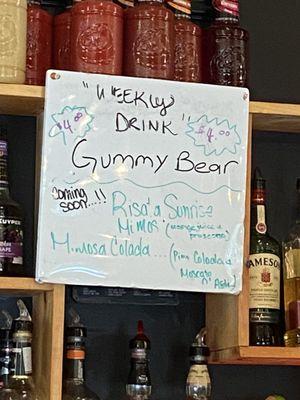 "WEEKLY
DRINK"
$4⁰⁰
$4.⁰⁰
Gummy Bear
Coming
Soon...!!
Risa'a Sunrise
Mimos (orange juice &
prosecco)
Mimosa Colada... (Pina Colada &
Moscato
JAMESON